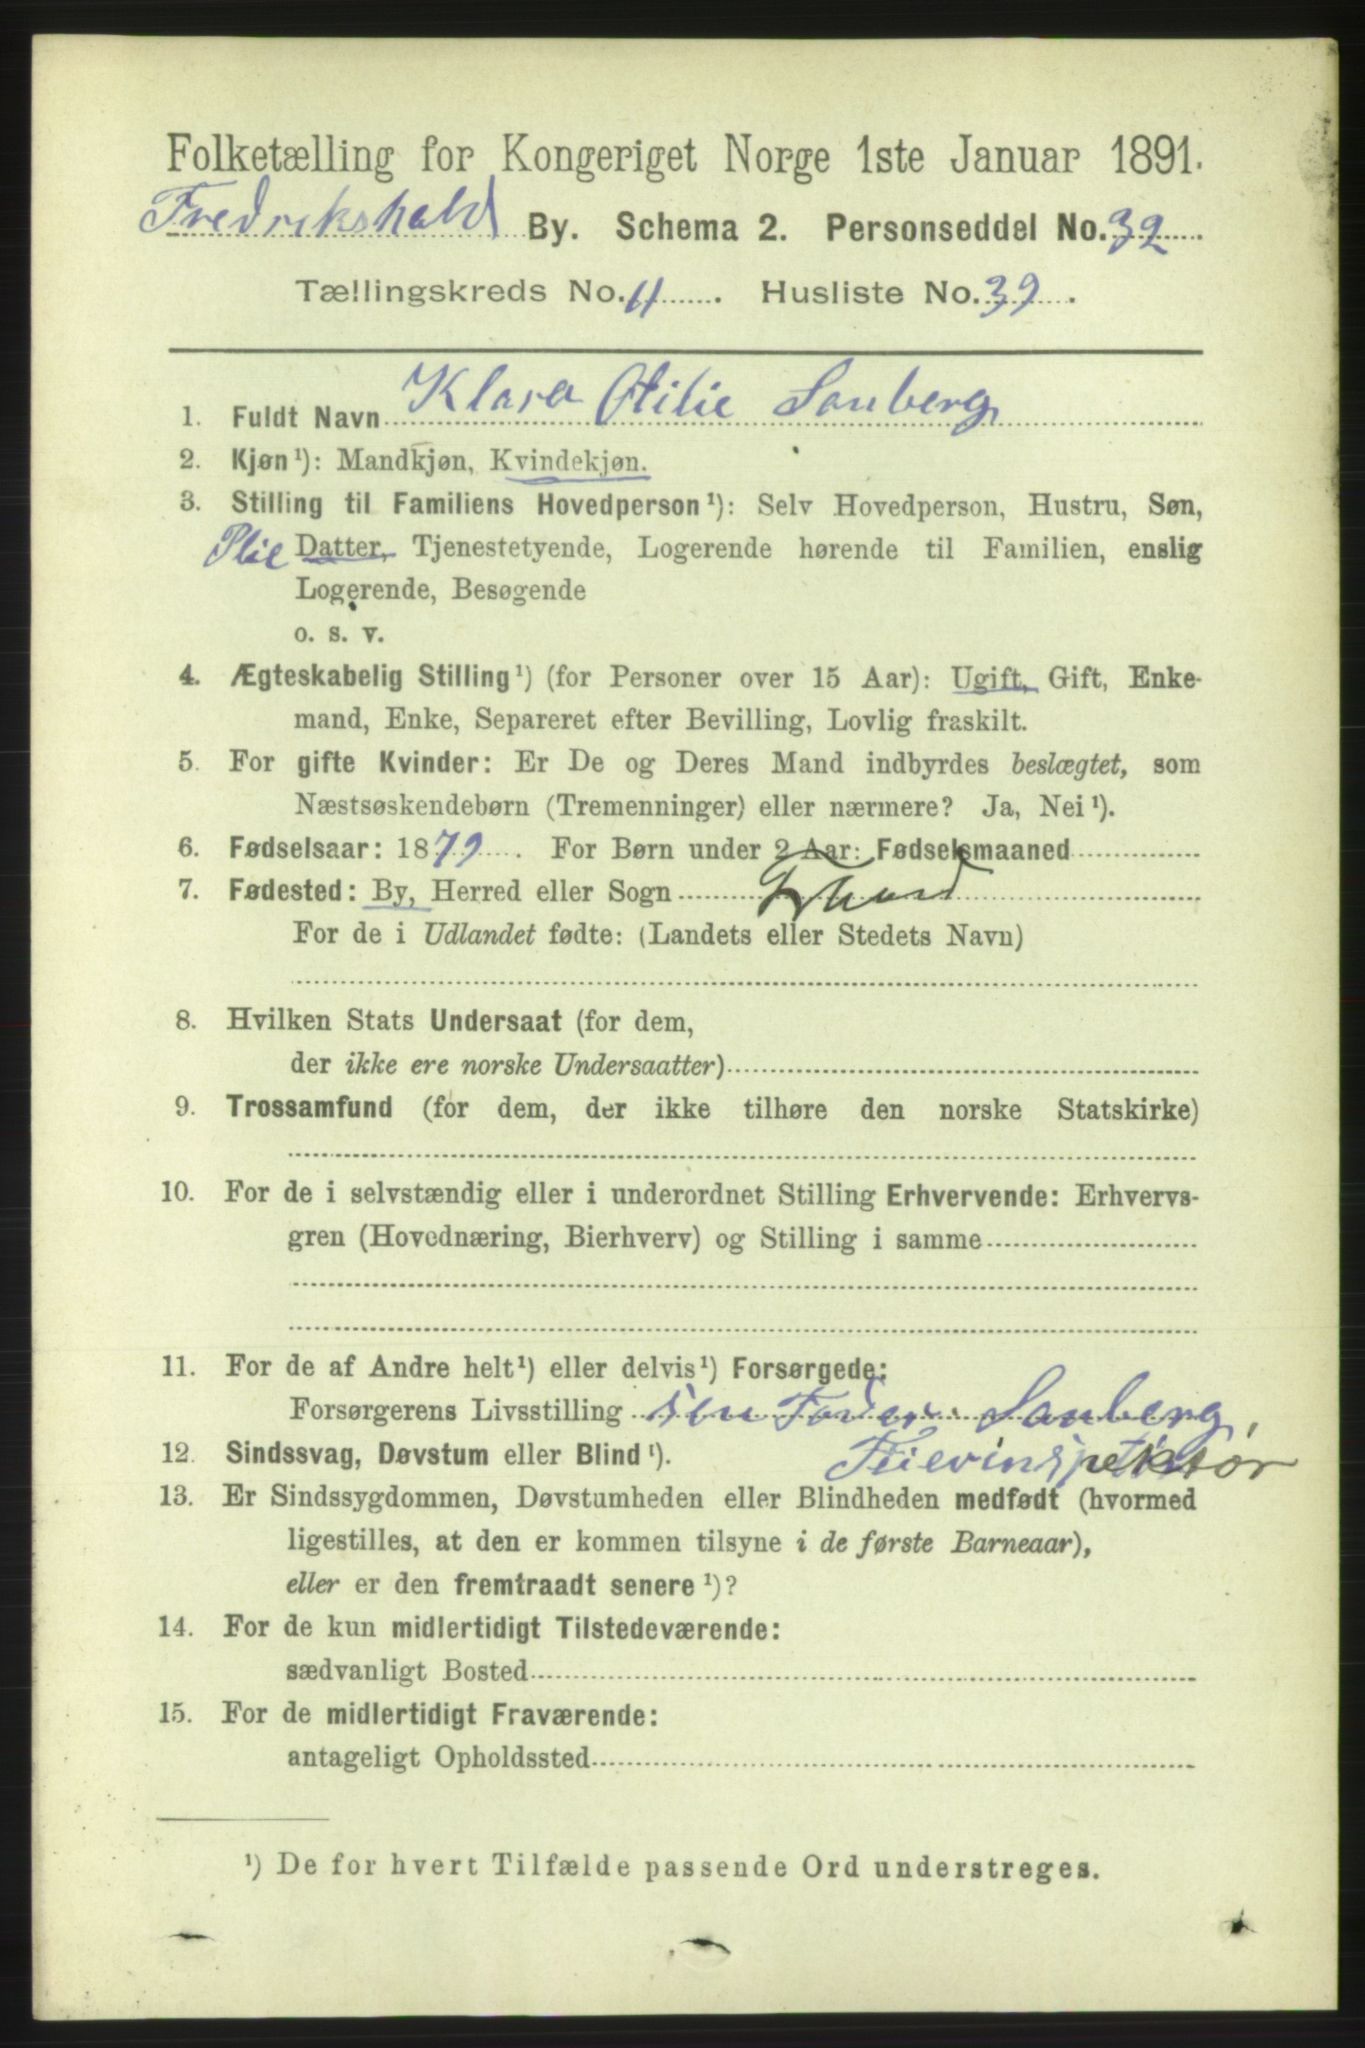 Folketælling for Kongeriget Norge 1ste Januar 1891.
Fredrikshald By. Schema 2. Personseddel No. 32.
Tællingskreds No. 11. Husliste No. 39.
1. Fuldt Navn Klara Otilie Sanberg
2. Kjøn¹): Mandkjøn, Kvindekjøn.
3. Stilling til Familiens Hovedperson¹): Selv Hovedperson, Hustru, Søn,
Plie Datter, Tjenestetyende, Logerende hørende til Familien, enslig
Logerende, Besøgende
o. s. v.
4. Ægteskabelig Stilling¹) (for Personer over 15 Aar): Ugift, Gift, Enke-
mand, Enke, Separeret efter Bevilling, Lovlig fraskilt.
5. For gifte Kvinder: Er De og Deres Mand indbyrdes beslægtet, som
Næstsøskendebørn (Tremenninger) eller nærmere? Ja, Nei¹).
6. Fødselsaar: 1879. For Børn under 2 Aar: Fødselsmaaned
7. Fødested: By, Herred eller Sogn
For de i Udlandet fødte: (Landets eller Stedets Navn)
8. Hvilken Stats Undersaat (for dem,
der ikke ere norske Undersaatter)
9. Trossamfund (for dem, der ikke tilhøre den norske Statskirke)
10. For de i selvstændig eller i underordnet Stilling Erhvervende: Erhvervs-
gren (Hovednæring, Bierhverv) og Stilling i samme
11. For de af Andre helt¹) eller delvis¹) Forsørgede:
Forsørgerens Livsstilling sin Fader Sanberg,
12. Sindssvag, Døvstum eller Blind¹). Feierinspektør
13. Er Sindssygdommen, Døvstumheden eller Blindheden medfødt (hvormed
ligestilles, at den er kommen tilsyne i de første Barneaar),
eller er den fremtraadt senere¹)?
14. For de kun midlertidigt Tilstedeværende:
sædvanligt Bosted
15. For de midlertidigt Fraværende:
antageligt Opholdssted
¹) De for hvert Tilfælde passende Ord understreges.